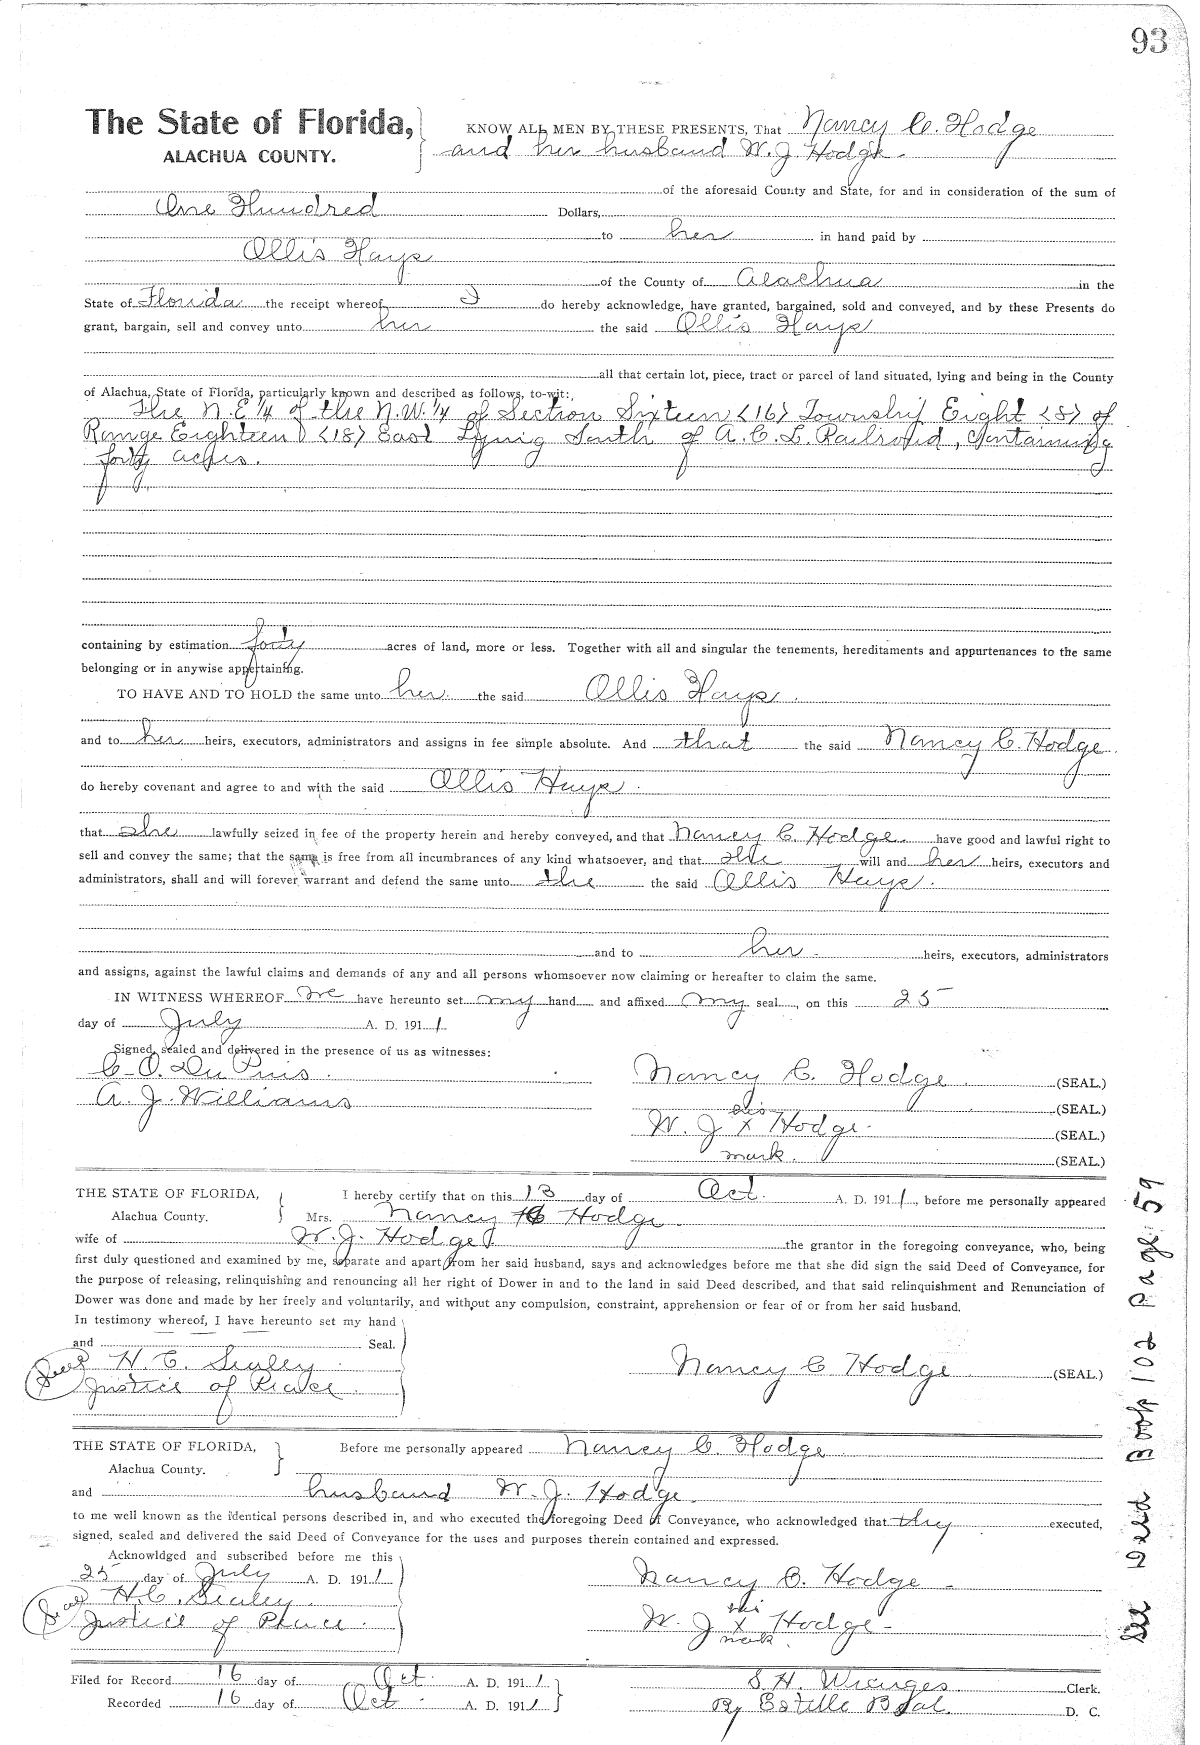 93
The State of Florida, KNOW ALL MEN BY THESE PRESENTS, That Nancy C. Hodge
ALACHUA COUNTY. and her husband W. J. Hodge.
of the aforesaid County and State, for and in consideration of the sum of
One Hundred Dollars,
to her in hand paid by
Ollis Hays
of the County of Alachua in the
State of Florida the receipt whereof I do hereby acknowledge, have granted, bargained, sold and conveyed, and by these Presents do
grant, bargain, sell and convey unto her the said Ollis Hays
all that certain lot, piece, tract or parcel of land situated, lying and being in the County
of Alachua, State of Florida, particularly known and described as follows, to-wit:
The N.E 1/4 of the N.W. 1/4 of Section Sixteen <16> Township Eight <8> of
Range Eighteen <18> East Lynig South of A. C. L. Railroad, Containing
forty acres.
containing by estimation forty acres of land, more or less. Together with all and singular the tenements, hereditaments and appurtenances to the same
belonging or in anywise appertaining.
TO HAVE AND TO HOLD the same unto her the said Ollis Hays.
and to her heirs, executors, administrators and assigns in fee simple absolute. And that the said Nancy C. Hodge
do hereby covenant and agree to and with the said Ollis Hays.
that she lawfully seized in fee of the property herein and hereby conveyed, and that Nancy C. Hodge have good and lawful right to
sell and convey the same; that the same is free from all incumbrances of any kind whatsoever, and that she will and her heirs, executors and
administrators, shall and will forever warrant and defend the same unto the the said Ollis Hays.
and to her heirs, executors, administrators
and assigns, against the lawful claims and demands of any and all persons whomsoever now claiming or hereafter to claim the same.
IN WITNESS WHEREOF we have hereunto set my hand and affixed my seal, on this 25
day of July A. D. 1911
Signed, sealed and delivered in the presence of us as witnesses:
C. O. Du Puis. Nancy C. Hodge (SEAL.)
A. J. Williams (SEAL.)
his
W. J x Hodge. (SEAL.)
mark. (SEAL.)
THE STATE OF FLORIDA, I hereby certify that on this 13 day of Oct. A. D. 1911, before me personally appeared
Alachua County. Mrs. Nancy C Hodge
wife of W. J. Hodge the grantor in the foregoing conveyance, who, being
first duly questioned and examined by me, separate and apart from her said husband, says and acknowledges before me that she did sign the said Deed of Conveyance, for
the purpose of releasing, relinquishing and renouncing all her right of Dower in and to the land in said Deed described, and that said relinquishment and Renunciation of
Dower was done and made by her freely and voluntarily, and without any compulsion, constraint, apprehension or fear of or from her said husband.
In testimony whereof, I have hereunto set my hand
and Seal.
Seal H. C. Sealey Nancy C Hodge (SEAL.)
Justice of Peace.
THE STATE OF FLORIDA, Before me personally appeared Nancy C. Hodge
Alachua County.
and husband W. J. Hodge.
to me well known as the identical persons described in, and who executed the foregoing Deed of Conveyance, who acknowledged that they executed,
signed, sealed and delivered the said Deed of Conveyance for the uses and purposes therein contained and expressed.
Acknowldged and subscribed before me this
25 day of July A. D. 1911 Nancy C. Hodge
Seal H. C. Sealey his
Justice of Peace. W. J x Hodge
mark
Filed for Record 16 day of Oct. A. D. 1911 S. H. Wienges Clerk.
Recorded 16 day of Oct. A. D. 1911 By Estelle Beal. D. C.
See Deed Book 102 Page 59